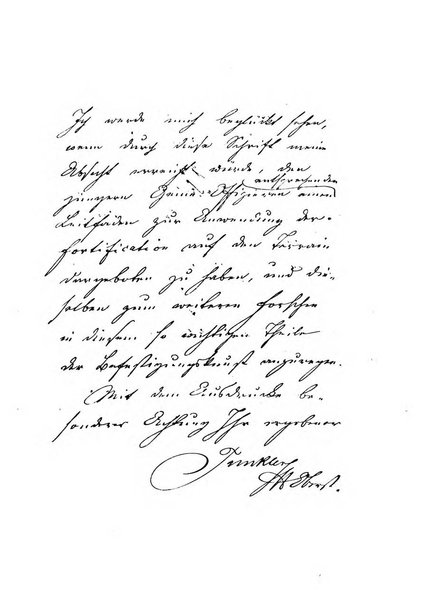 Ich werde mich beglückt sehen,
wenn durch diese Schrift meine
Absicht erreicht würde, den
entsprechenden
jüngern Genie-Offizieren einen
Leitfaden zur Anwendung der
Fortification auf den Terrain
dargeboten zu haben, und die-
selben zum weiteren Forschen
in diesem so wichtigen Theile
der Befestigungskunst anzuregen.
Mit dem Ausdrucke be-
sonderer Achtung Ihr ergebener
Tunkler
Oberst.